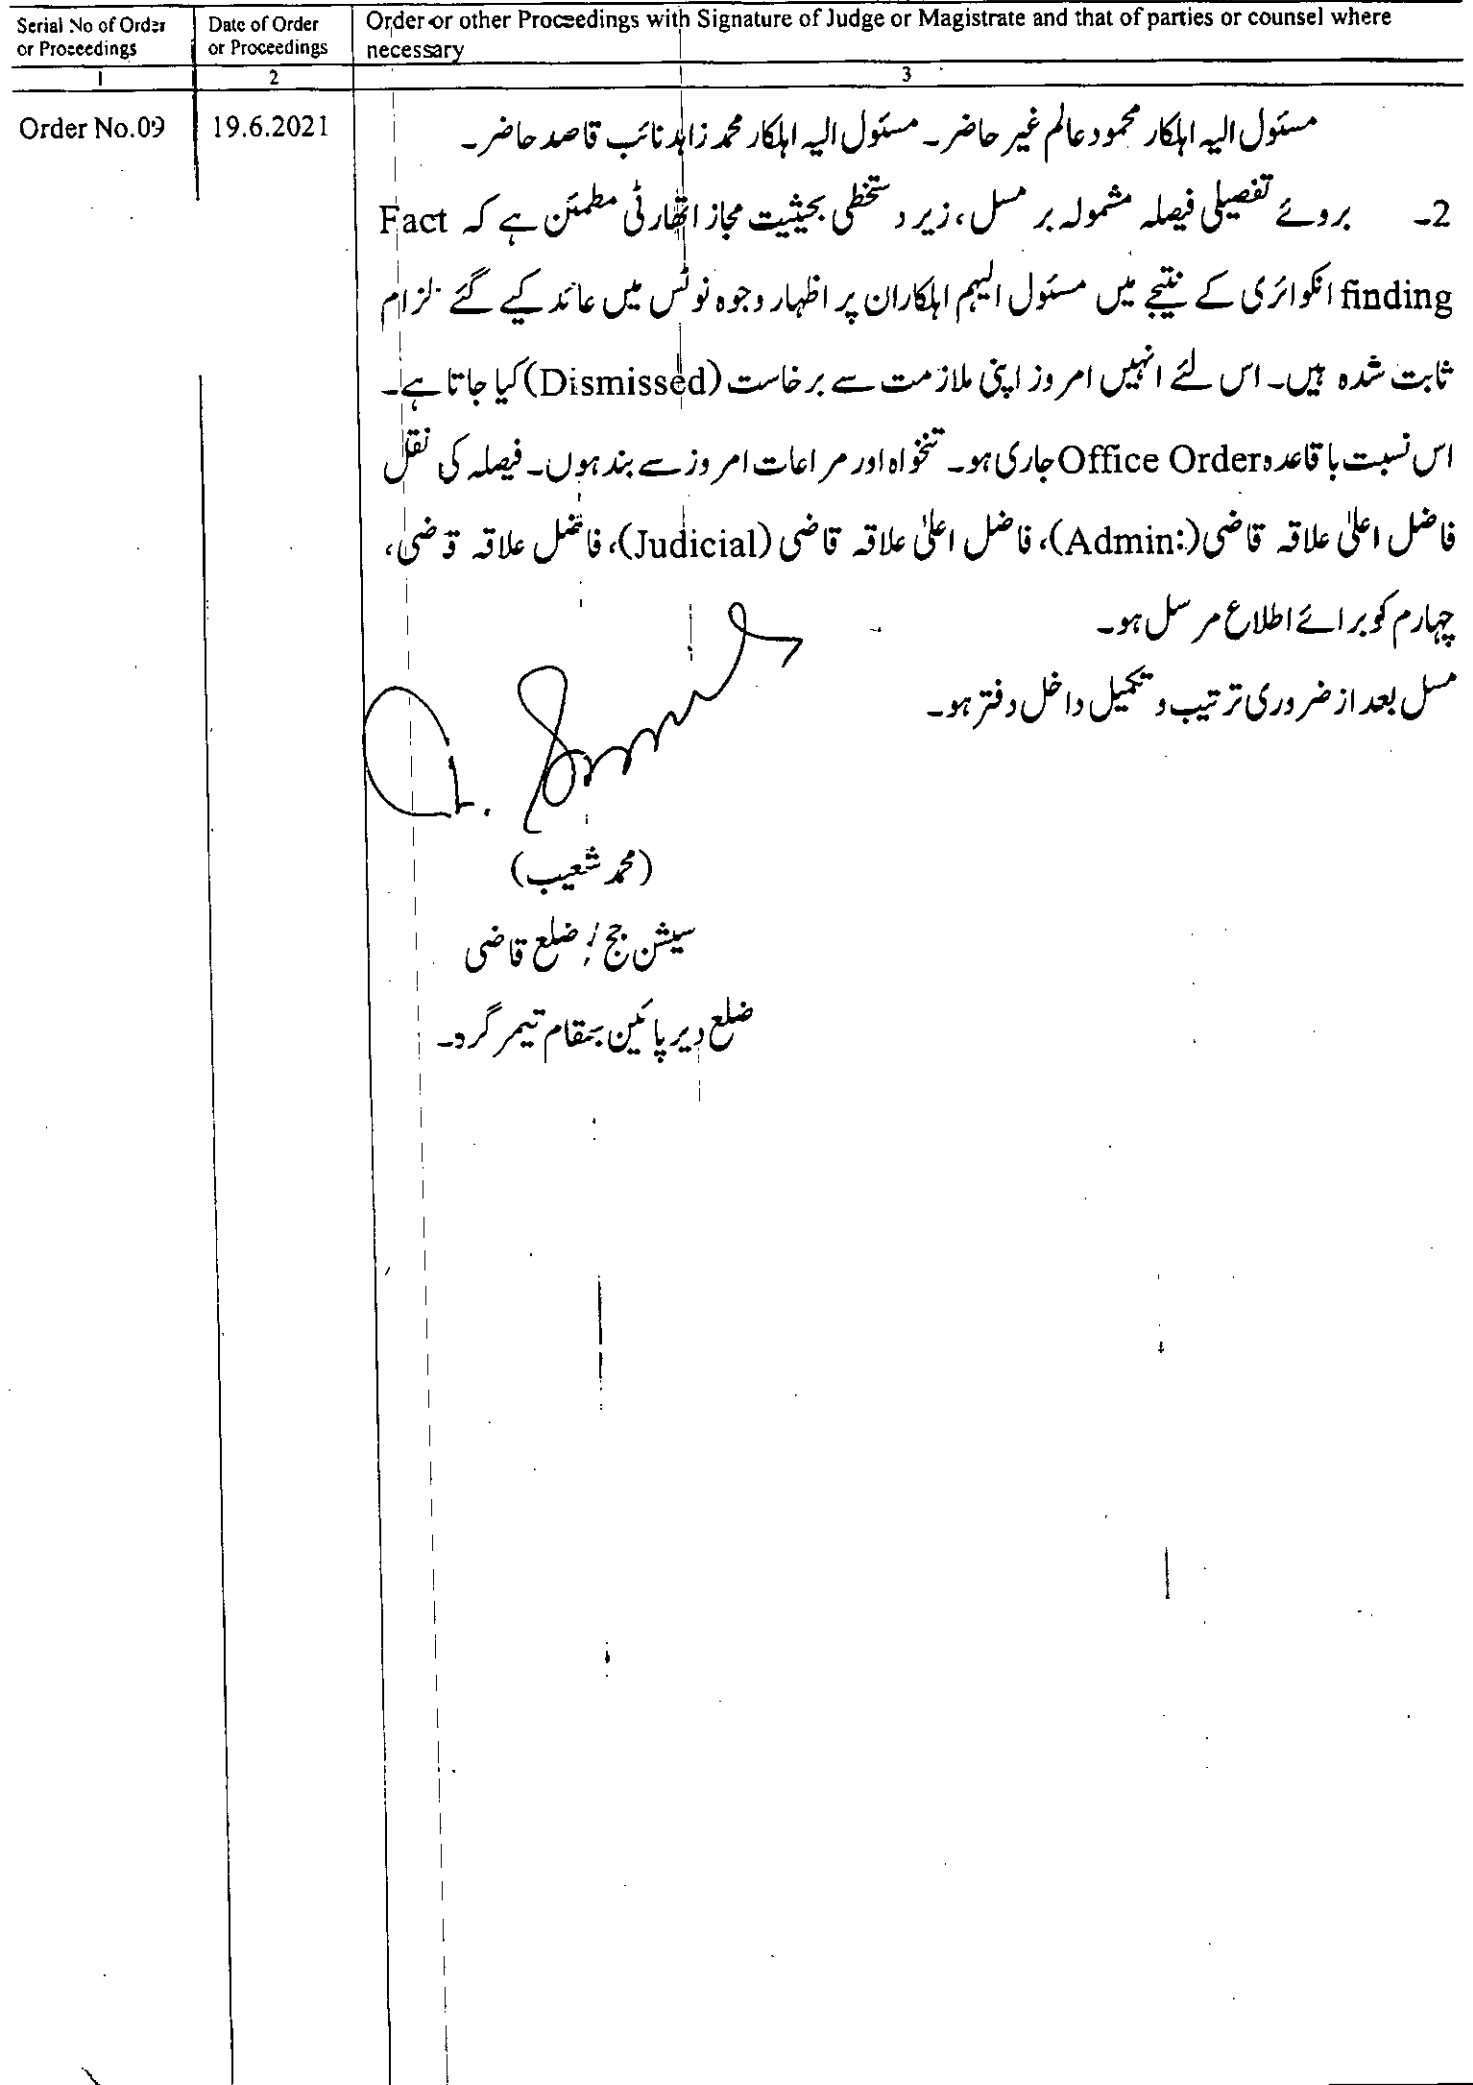 Serial No of Order or Proceedings
Date of Order or Proceedings
Order or other Proceedings with Signature of Judge or Magistrate and that of parties or counsel where necessary
1
2
3
Order No.09
19.6.2021
مسئول الیہ اہلکار محمود عالم غیر حاضر۔ مسئول الیہ اہلکار محمد زاہد نائب قاصد حاضر۔
2۔ بروئے تفصیلی فیصلہ مشمولہ بر مسل، زیر دستخطی بحیثیت مجاز اتھارٹی مطمئن ہے کہ Fact
finding انکوائری کے نتیجے میں مسئول الیہم اہلکاران پر اظہار وجوہ نوٹس میں عائد کیے گئے الزام
ثابت شدہ ہیں۔ اس لئے انہیں امروز اپنی ملازمت سے برخاست (Dismissed) کیا جاتا ہے۔
اس نسبت باقاعدہ Office Order جاری ہو۔ تنخواہ اور مراعات امروز سے بند ہوں۔ فیصلہ کی نقل
فاضل اعلیٰ علاقہ قاضی (Admin:)، فاضل اعلیٰ علاقہ قاضی (Judicial)، فاضل علاقہ قاضی،
چہارم کو برائے اطلاع مرسل ہو۔
مسل بعد از ضروری ترتیب و تکمیل داخل دفتر ہو۔
(محمد شعیب)
سیشن جج / ضلع قاضی
ضلع دیر پائین بمقام تیمرگرہ۔